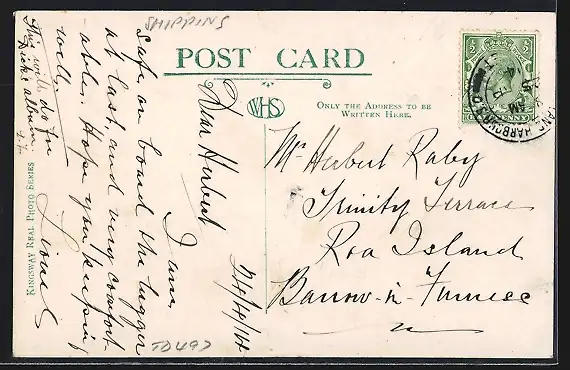 SHIPPING
POST CARD
WHS
ONLY THE ADDRESS TO BE
WRITTEN HERE.
½ ½
24/4/14
Dear Herbert
I am
safe on board the lugger
at last, and very comfort-
able. Hope you keeping
well.
Lionel
This will do for
Dick's album.
Mr Herbert Raby
Trinity Terrace
Roa Island
Barrow-in-Furness
KINGSWAY REAL PHOTO SERIES
TD497